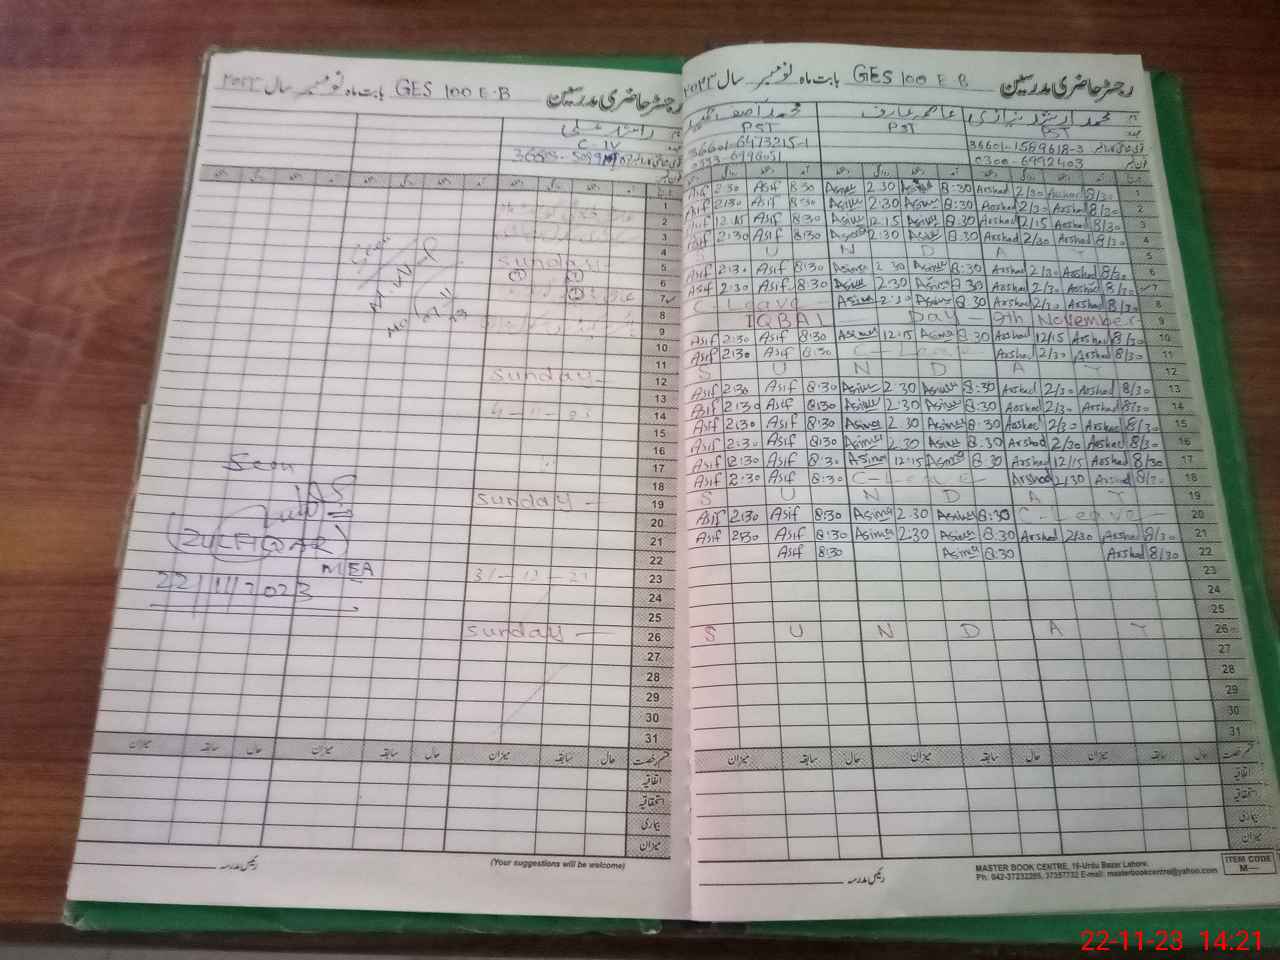 رجسٹر حاضری مدرسین GES 100 E.B بابت ماہ نومبر سال ۲۰۲۳
راشد علی
C IV
1
2
3
4
sunday
5
6
7
8
9
10
11
sunday
12
13
14
15
16
17
18
sunday
19
20
21
22
23
24
25
sunday
26
27
28
29
30
31
Seen
(ZULFIQAR)
MEA
22/11/2023
قسم رخصت حال سابقہ میزان حال سابقہ میزان حال سابقہ میزان
اتفاقیہ
استحقاقیہ
بیماری
میزان
رئیس مدرسہ
(Your suggestions will be welcome)
رجسٹر حاضری مدرسین GES 100 E.B بابت ماہ نومبر سال ۲۰۲۳
محمد ارشد نیازی عاصمہ عارف محمد آصف
PST PST PST
36601-1589618-3 36601-6473215-1
0300-6992403
Asif 2:30 Asif 8:30 Asima 2:30 Asima 8:30 Arshad 2/30 Arshad 8/30 1
Asif 2:30 Asif 8:30 Asima 2:30 Asima 8:30 Arshad 2/30 Arshad 8/30 2
Asif 12:15 Asif 8:30 Asima 12:15 Asima 8:30 Arshad 12/15 Arshad 8/30 3
Asif 2:30 Asif 8:30 Asima 2:30 Asima 8:30 Arshad 2/30 Arshad 8/30 4
S U N D A Y 5
Asif 2:30 Asif 8:30 Asima 2:30 Asima 8:30 Arshad 2/30 Arshad 8/30 6
Asif 2:30 Asif 8:30 Asima 2:30 Asima 8:30 Arshad 2/30 Arshad 8/30 7
C Leave Asima 2:30 Asima 8:30 Arshad 2/30 Arshad 8/30 8
IQBAL Day - 9th November 9
Asif 2:30 Asif 8:30 Asima 12:15 Asima 8:30 Arshad 12/15 Arshad 8/30 10
Asif 2:30 Asif 8:30 C-Leave Arshad 2/30 Arshad 8/30 11
S U N D A Y 12
Asif 2:30 Asif 8:30 Asima 2:30 Asima 8:30 Arshad 2/30 Arshad 8/30 13
Asif 2:30 Asif 8:30 Asima 2:30 Asima 8:30 Arshad 2/30 Arshad 8/30 14
Asif 2:30 Asif 8:30 Asima 2:30 Asima 8:30 Arshad 2/30 Arshad 8/30 15
Asif 2:30 Asif 8:30 Asima 2:30 Asima 8:30 Arshad 2/30 Arshad 8/30 16
Asif 12:30 Asif 8:30 Asima 12:15 Asima 8:30 Arshad 12/15 Arshad 8/30 17
Asif 2:30 Asif 8:30 C-Leave Arshad 2/30 Arshad 8/30 18
S U N D A Y 19
Asif 2:30 Asif 8:30 Asima 2:30 Asima 8:30 C-Leave 20
Asif 2:30 Asif 8:30 Asima 2:30 Asima 8:30 Arshad 2/30 Arshad 8/30 21
Asif 8:30 Asima 8:30 Arshad 8/30 22
23
24
25
S U N D A Y 26
27
28
29
30
31
قسم رخصت حال سابقہ میزان حال سابقہ میزان حال سابقہ میزان
اتفاقیہ
استحقاقیہ
بیماری
میزان
رئیس مدرسہ
MASTER BOOK CENTRE, 16-Urdu Bazar Lahore.
Ph: 042-37232265, 37357732 E-mail: masterbookcentre@yahoo.com
ITEM CODE
M—
22-11-23 14:21